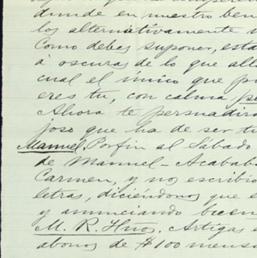 donde en nuestro ben
los alternativamente
Como debes suponer, esta
á oscuras de lo que all
cual el único que p
eres tu, con calma
Ahora te persuadirá
joso que ha de ser t
Manuel. Por fin el Sábado
de Manuel. Acabab
Carmen, y nos escribi
letras, diciéndonos que e
y anunciando buen
M. R. Hnos. Artigas
abonos de $100 mensu